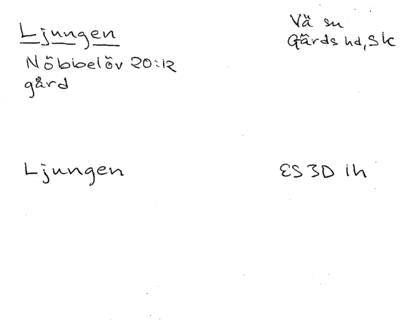 Ljungen
Nöbbelöv 20:12
gård
Vä sn
Gärds hd, Sk
Ljungen
ES3D 1h